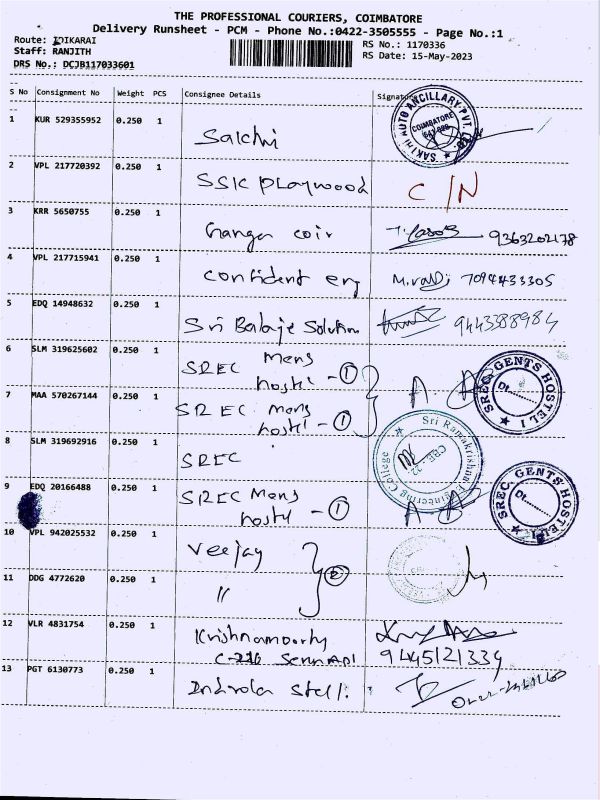 THE PROFESSIONAL COURIERS, COIMBATORE
Delivery Runsheet - PCM - Phone No.:0422-3505555 - Page No.:1
Route: IDIKARAI
Staff: RANJITH
RS No.: 1170336
RS Date: 15-May-2023
DRS No.: DCJB117033601
S No Consignment No Weight PCS Consignee Details Signature
1 KUR 529355952 0.250 1 Sakthi
SAKTHI AUTO ANCILLARY PVT. LTD.
COIMBATORE
2 VPL 217720392 0.250 1 SSK playwood C/N
3 KRR 5650755 0.250 1 Ganga coir 9363202178
4 VPL 217715941 0.250 1 confident eng 7094433305
5 EDQ 14948632 0.250 1 Sri Balaje Solution 9443388984
6 SLM 319625602 0.250 1 SREC Mens
hostel - 1
SREC GENTS HOSTEL I
7 MAA 570267144 0.250 1 SREC Mens
hostel - 1
8 SLM 319692916 0.250 1 SREC
Sri Ramakrishna Engineering College
CBE-22
9 EDQ 20166488 0.250 1 SREC Mens
hostel - 1
SREC GENTS HOSTEL I
10 VPL 942025532 0.250 1 Veejay
2
11 DDG 4772620 0.250 1 "
12 VLR 4831754 0.250 1 Krishnamoorthy
9445121334
13 PGT 6130773 0.250 1